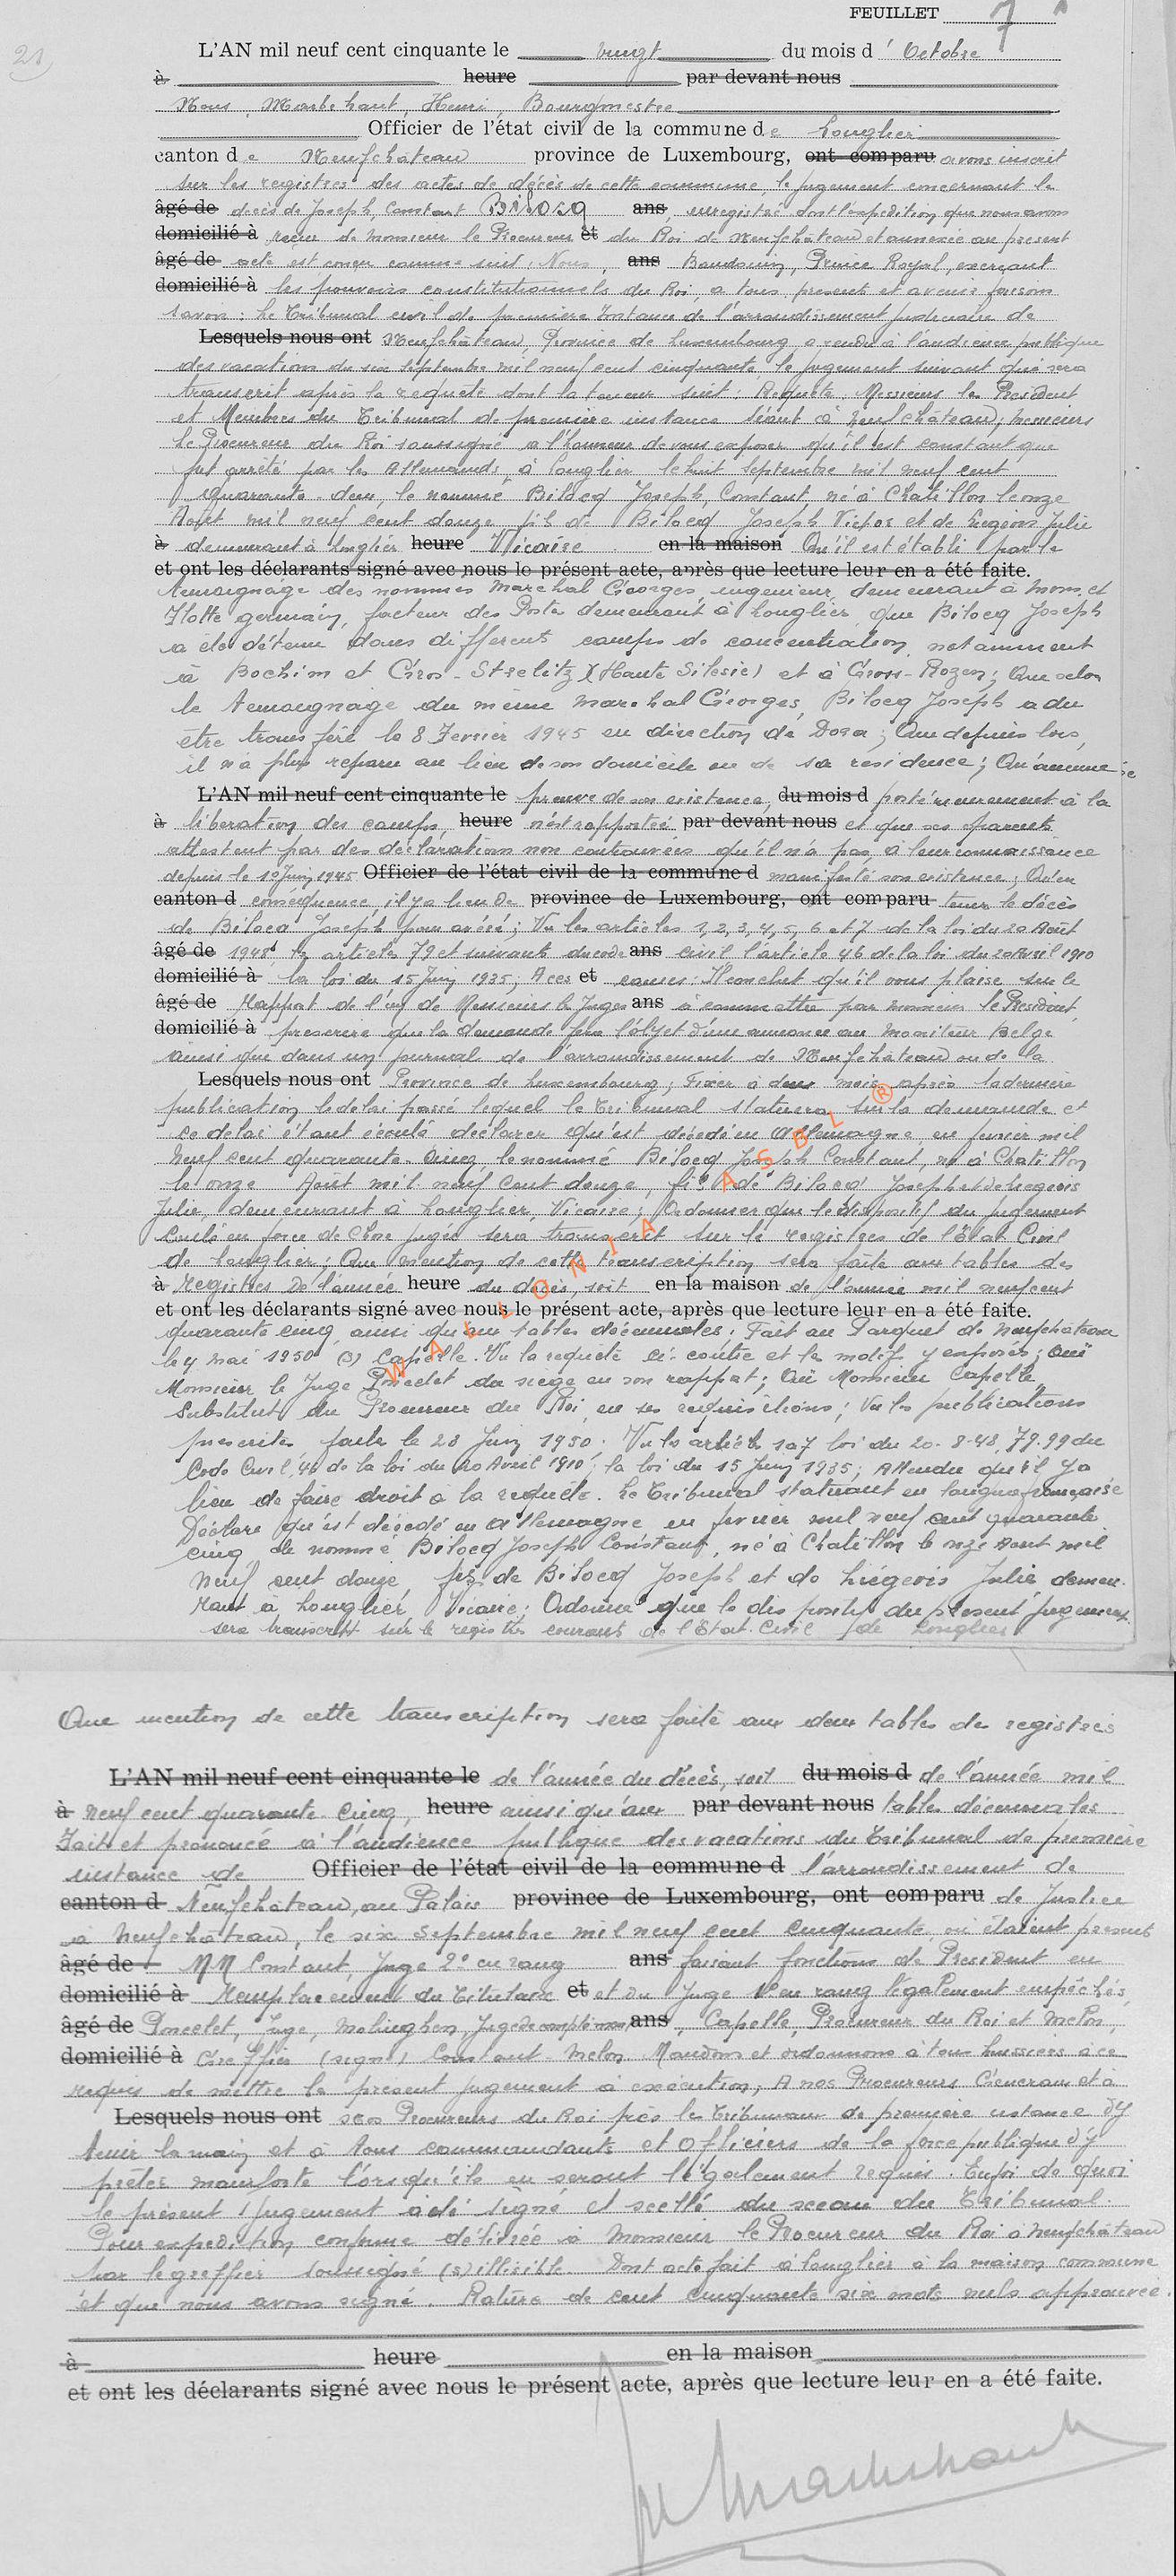 FEUILLET 7
21
L'AN mil neuf cent cinquante le vingt du mois d' Octobre
à heure par devant nous
Nous, Marbehant, Henri, Bourgmestre
Officier de l'état civil de la commune de Longlier
canton de Neufchâteau province de Luxembourg, ont comparu avons inscrit
sur les registres des actes de décès de cette commune, le jugement concernant le
âgé de décès de Joseph, Constant Bilocq ans, enregistré dont l'expédition que nous avons
domicilié à reçue de Monsieur le Procureur et du Roi de Neufchâteau et annexée au présent
âgé de acte est conçu comme suit: Nous, ans Baudouin, Prince Royal, exerçant
domicilié à les pouvoirs constitutionnels du Roi, à tous présents et à venir faisons
savoir: Le Tribunal civil de première Instance de l'arrondissement judiciaire de
Lesquels nous ont Neufchâteau, Province de Luxembourg, a rendu à l'audience publique
des vacations du six septembre mil neuf cent cinquante le jugement suivant qui sera
transcrit après la requête dont la teneur suit: Requête, Messieurs les Président
et Membres du Tribunal de première instance séant à Neufchâteau, Messieurs
Le Procureur du Roi soussigné a l'honneur de vous exposer qu'il est constant que
fut arrêté par les Allemands à Longlier le huit septembre mil neuf cent
quarante-deux, le nommé Bilocq Joseph, Constant, né à Chatillon le onze
Aout mil neuf cent douze, fils de Bilocq Joseph Victor et de Liégeois Julie
à demeurant à Longlier heure Vicaire en la maison Qu'il est établi par le
et ont les déclarants signé avec nous le présent acte, après que lecture leur en a été faite.
témoignage des nommés Maréchal Georges, ingénieur, demeurant à Mons, et
Hotte germain, facteur des Postes demeurant à Longlier, que Bilocq Joseph
a été détenu dans différents camps de concentration, notamment
à Bochim et Gros-Strelitz (Haute Silésie) et à Gross-Rozen; Que selon
le témoignage du même Maréchal Georges, Bilocq Joseph a du
être transféré le 8 Fevrier 1945 en direction de Dora; Que depuis lors,
il n'a plus reparu au lieu de son domicile ou de sa résidence; Qu'aucune
L'AN mil neuf cent cinquante le preuve de son existence, du mois d postérieurement à la
à libération des camps, heure n'est rapportée par devant nous et que ses parents
attestent par des déclarations non controuvées qu'il n'a pas, à leur connaissance
depuis le 10 Juin 1945 Officier de l'état civil de la commune d manifesté son existence; Qu'en
canton d conséquence il y a lieu de province de Luxembourg, ont comparu tenir le décès
de Bilocq Joseph pour avéré; Vu les articles 1, 2, 3, 4, 5, 6 et 7 de la loi du 20 Août
âgé de 1948, les articles 79 et suivants du code ans civil l'article 46 de la loi du 20 Avril 1910
domicilié à la loi du 15 Juin 1935; A ces et causes: Il conclut qu'il vous plaise sur le
âgé de Rapport de l'un de Messieurs les Juges ans à commettre par Monsieur le Président,
domicilié à prescrire que la demande fera l'objet d'une annonce au Moniteur Belge
ainsi que dans un journal de l'arrondissement de Neufchâteau ou de la
Lesquels nous ont Province de Luxembourg; Fixer à deux mois après la dernière
publication le délai passé lequel le Tribunal statuera sur la demande et
ce délai étant écoulé déclarer qu'est décédé en Allemagne en fevrier mil
neuf cent quarante-cinq, le nommé Bilocq Joseph Constant, né à Chatillon
le onze Aout mil neuf cent douze, fils de Bilocq Joseph et de Liégeois
Julie, demeurant à Longlier, Vicaire; Ordonner que le dispositif du jugement
coulé en force de chose jugée sera transcrit sur le registres de l'Etat Civil
de Longlier; Que mention de cette transcription sera faite aux tables des
à registres de l'année heure du décès, soit en la maison de l'année mil neuf cent
et ont les déclarants signé avec nous le présent acte, après que lecture leur en a été faite.
quarante cinq, ainsi qu'aux tables décennales. Fait au Parquet de Neufchateau
le 4 mai 1950 (s) Capelle. Vu la requête ci-contre et les motifs y exposés; Ouï
Monsieur le Juge Poncelet du siège en son rapport; Ouï Monsieur Capelle,
Substitut du Procureur du Roi en ses requisitions; Vu les publications
prescrites faites le 28 Juin 1950; Vu les articles 1 à 7 loi du 20-8-48, 79.99 du
Code Civil, 46 de la loi du 20 Avril 1910; la loi du 15 Juin 1935; Attendu qu'il y a
lieu de faire droit à la requête. Le Tribunal statuant en langue française
Déclare qu'est décédé en Allemagne en fevrier mil neuf cent quarante
cinq, le nommé Bilocq Joseph Constant, né à Chatillon le onze Aout mil
neuf cent douze, fils de Bilocq Joseph et de Liégeois Julie, demeu-
rant à Longlier, Vicaire; Ordonne que le dispositif du présent jugement
sera transcrit sur le registres courants de l'Etat-Civil de Longlier
WALLONIA ASBL ®
Que mention de cette transcription sera faite aux deux tables des registres
L'AN mil neuf cent cinquante le de l'année du décès, soit du mois d de l'année mil
à neuf cent quarante-cinq, heure ainsi qu'aux par devant nous tables décennales
Fait et prononcé à l'audience publique des vacations du Tribunal de première
instance de Officier de l'état civil de la commune d l'arrondissement de
canton d Neufchâteau, au Palais province de Luxembourg, ont comparu de Justice
à Neufchâteau, le six septembre mil neuf cent cinquante, où étaient présents
âgé de MM Constant, Juge 2e en rang ans faisant fonctions de Président en
domicilié à Remplacement du Titulaire et et du Juge 1er en rang légalement empêchés,
âgé de Poncelet, Juge, Molinghen, Juge de complément ans, Capelle, Procureur du Roi et Melon,
domicilié à Greffier (signé) Constant-Melon Mandons et ordonnons à tous huissiers à ce
requis de mettre le présent jugement à exécution; A nos Procureurs Généraux et à
Lesquels nous ont nos Procureurs du Roi près les tribunaux de première instance d'y
tenir la main et à tous commandants et officiers de la force publique d'y
prêter mainforte lorsqu'ils en seront légalement requis. En foi de quoi
le présent jugement a été signé et scellé du sceau du Tribunal.
Pour expédition conforme délivrée à Monsieur le Procureur du Roi à Neufchâteau
par le greffier soussigné (s) illisible. Dont acte fait à Longlier à la maison communale
et que nous avons signé. Rature de cent cinquante six mots nuls approuvée.
à heure en la maison
et ont les déclarants signé avec nous le présent acte, après que lecture leur en a été faite.